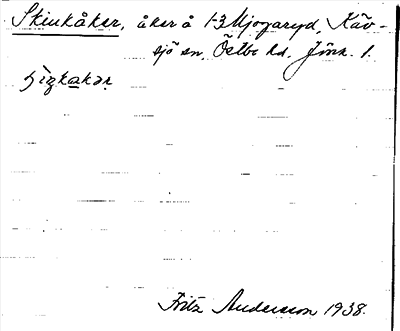 Skinkåker, åker å 1-3 Mjogaryd, Käv-
sjö sn. Östbo hd. Jönk. l.
Fritz Andersson 1938.